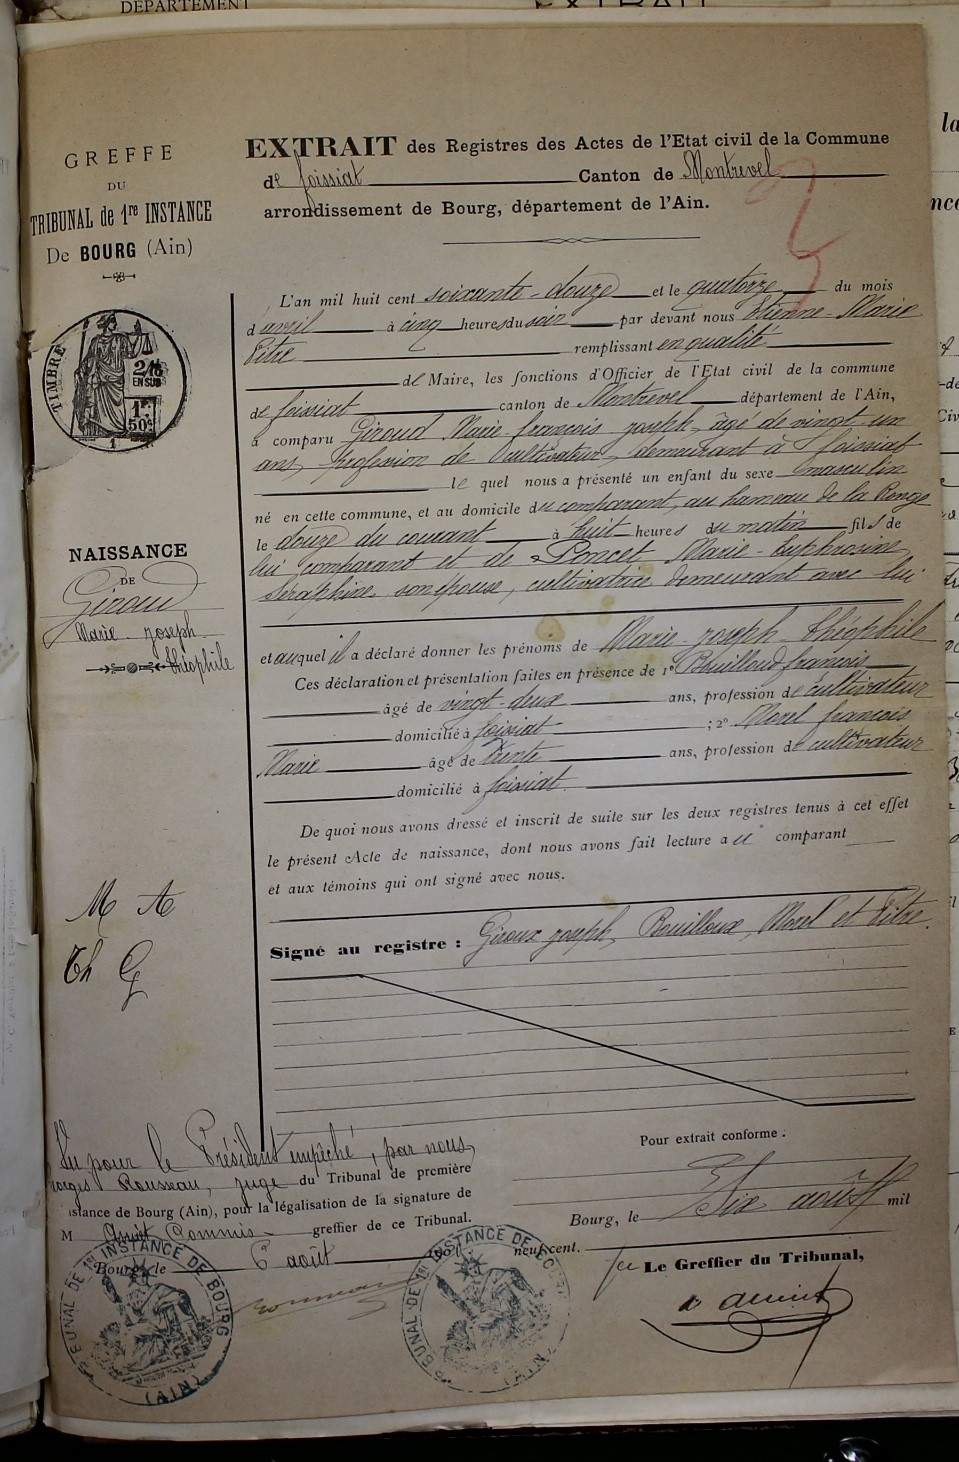 DÉPARTEMENT
EXTRAIT
GREFFE
DU
TRIBUNAL de 1re INSTANCE
De BOURG (Ain)
TIMBRE
2/10
EN SUS
1F
50c
1
NAISSANCE
DE
Giroud
Marie Joseph
théophile
M A
Th G
EXTRAIT des Registres des Actes de l'Etat civil de la Commune
de foissiat Canton de Montrevel
arrondissement de Bourg, département de l'Ain.
L'an mil huit cent soixante-douze et le quatorze du mois
d'avril à cinq heures du soir par devant nous Etienne-Marie
Pitre remplissant en qualité
de Maire, les fonctions d'Officier de l'Etat civil de la commune
de foissiat canton de Montrevel département de l'Ain,
a comparu Giroud Marie-françois joseph, âgé de vingt-un
ans, profession de cultivateur, demeurant à foissiat
le quel nous a présenté un enfant du sexe masculin
né en cette commune, et au domicile du comparant, au hameau de la
le douze du courant à huit heures du matin fils de
lui comparant et de Poncet Marie-Euphrosine
Séraphine son épouse, cultivatrice demeurant avec lui
et auquel il a déclaré donner les prénoms de Marie-joseph-théophile
Ces déclaration et présentation faites en présence de 1° Bouilloud françois
âgé de vingt-deux ans, profession de cultivateur
domicilié à foissiat ; 2° Morel françois
Marie âgé de trente ans, profession de cultivateur
domicilié à foissiat.
De quoi nous avons dressé et inscrit de suite sur les deux registres tenus à cet effet
le présent Acte de naissance, dont nous avons fait lecture au comparant
et aux témoins qui ont signé avec nous.
Signé au registre : Giroux joseph, Bouilloux, Morel et Pitre.
Vu pour le Président empêché, par nous
Rousseau, juge du Tribunal de première
instance de Bourg (Ain), pour la légalisation de la signature de
M Commis greffier de ce Tribunal.
Bourg, le 6 août
Pour extrait conforme :
Bourg, le Six août mil
neuf cent.
Le Greffier du Tribunal,
TRIBUNAL DE 1re INSTANCE DE BOURG
(AIN)
TRIBUNAL DE 1re INSTANCE DE BOURG
(AIN)